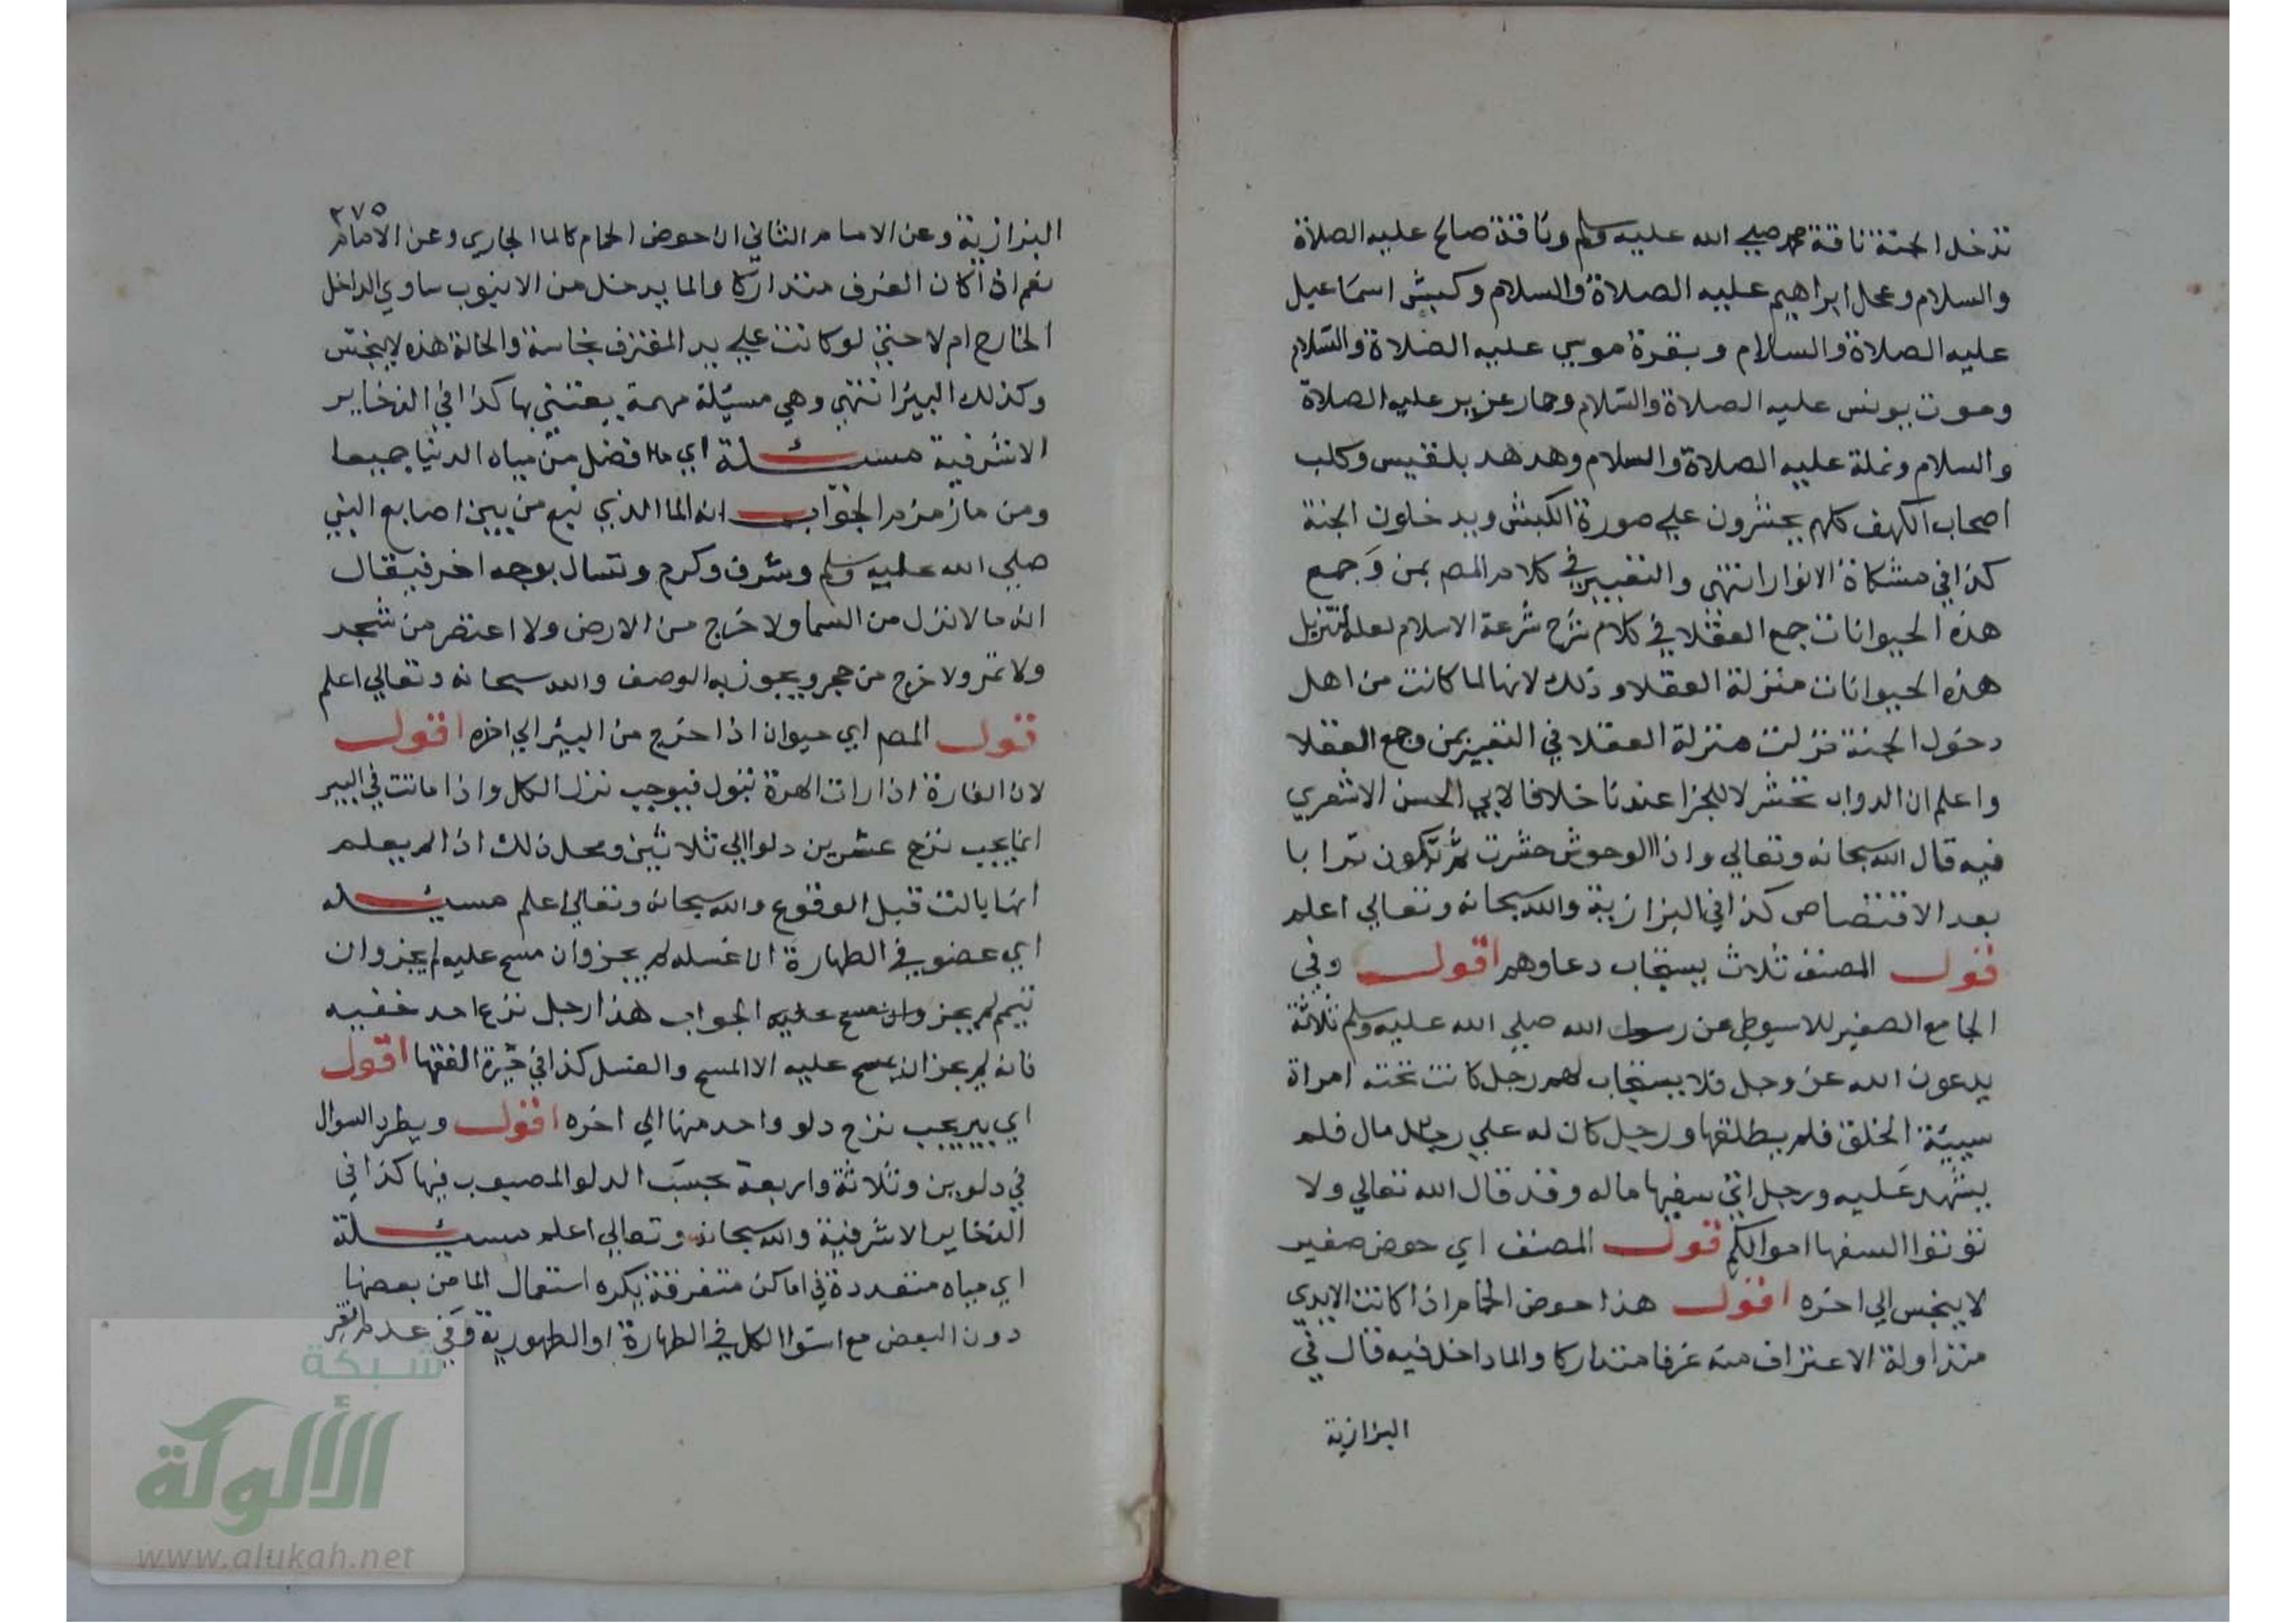 تدخل الجنة ناقة محمد صلي الله عليه وسلم وناقة صالح عليه الصلاة
والسلام وعجل ابراهيم عليه الصلاة والسلام وكبش اسماعيل
عليه الصلاة والسلام وبقرة موسي عليه الصلاة والسلام
وحوت يونس عليه الصلاة والسلام وحمار عزير عليه الصلاة
والسلام ونملة عليه الصلاة والسلام وهدهد بلقيس وكلب
اصحاب الكهف كلهم يحشرون علي صورة الكبش ويدخلون الجنة
كذا في مشكاة الانوار انتهي والتعبير في كلام المص بمن وجمع
هذه الحيوانات جمع العقلا في كلام شرح شرعة الاسلام لعله لتنزيل
هذه الحيوانات منزلة العقلا وذلك لانها لما كانت من اهل
دخول الجنة نزلت منزلة العقلا في التعبير بمن وجمع العقلا
واعلم ان الدواب تحشر لا للجزا عندنا خلافا لابي الحسن الاشعري
فيه قال الله سبحانه وتعالي واذا الوحوش حشرت ثم تكون ترابا
بعد الاقتصاص كذا في البزازية والله سبحانه وتعالي اعلم
قول المصنف ثلاث يستجاب دعاوهم اقول وفي
الجامع الصغير للاسيوطي عن رسول الله صلي الله عليه وسلم ثلاثة
يدعون الله عز وجل فلا يستجاب لهم رجل كانت تحته امراة
سيئة الخلق فلم يطلقها ورجل كان له علي رجل مال فلم
يشهد عليه ورجل اتي سفيها ماله وقد قال الله تعالي ولا
تؤتوا السفها اموالكم قول المصنف اي حوض صغير
لا ينجس الي اخره اقول هذا حوض الحمام اذا كانت الايدي
متداولة الاعتراف منه غرفا متداركا والما داخل فيه قال في
البزازية
٢٧٥
البزازية وعن الامام الثاني ان حوض الحمام كالما الجاري وعن الامام
نعم اذا كان الغرف متداركا والما يدخل من الانبوب ساوي الداخل
الخارج ام لا حتي لو كانت علي يد المغترف نجاسة والحالة هذه لا ينجس
وكذلك البير انتهي وهي مسئلة مهمة يعتني بها كذا في الذخاير
الاشرفية مسئلة اي ما افضل من مياه الدنيا جميعا
ومن ماز مزم الجواب انه الما الذي نبع من بين اصابع النبي
صلي الله عليه وسلم وشرف وكرم وتسال بوجه اخر فيقال
اي ما لا نزل من السما ولا خرج من الارض ولا اعتصر من شجر
ولا تمر ولا خرج من حجر ويجوز به الوصف والله سبحانه وتعالي اعلم
قول المص اي حيوان اذا خرج من البير الي اخره اقول
لان الفارة اذا رات الهرة تبول فيوجب نزل الكل واذا ماتت في البير
انما يجب نزح عشرين دلوا الي ثلاثين ومحل ذلك اذا لم يعلم
انها بالت قبل الوقوع والله سبحانه وتعالي اعلم مسئله
اي عضو في الطهارة ان غسله لم يجز وان مسح عليه لم يجز وان
تيمم لم يجز وان مسح عليه الجواب هذا رجل نزع احد خفيه
فانه لم يجز ان يمسح عليه الا المسح والغسل كذا في حيرة الفقها اقول
اي بير يجب نزح دلو واحد منها الي اخره اقول ويطرد السوال
في دلوين وثلاثة واربعة بحسب الدلو المصبوب فيها كذا في
الذخاير الاشرفية والله سبحانه وتعالي اعلم مسئلة
اي مياه متعددة في اماكن متفرقة يكره استعمال الما من بعضها
دون البعض مع استوا الكل في الطهارة او الطهورية وفي عدم
شبكة
الألوكة
www.alukah.net